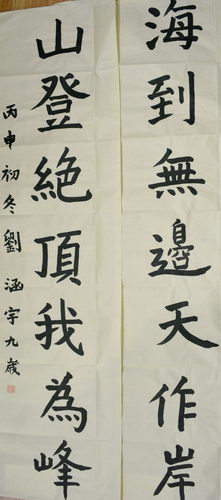 海到無邊天作岸
山登絶頂我為峰
丙申初冬劉涵宇九歲